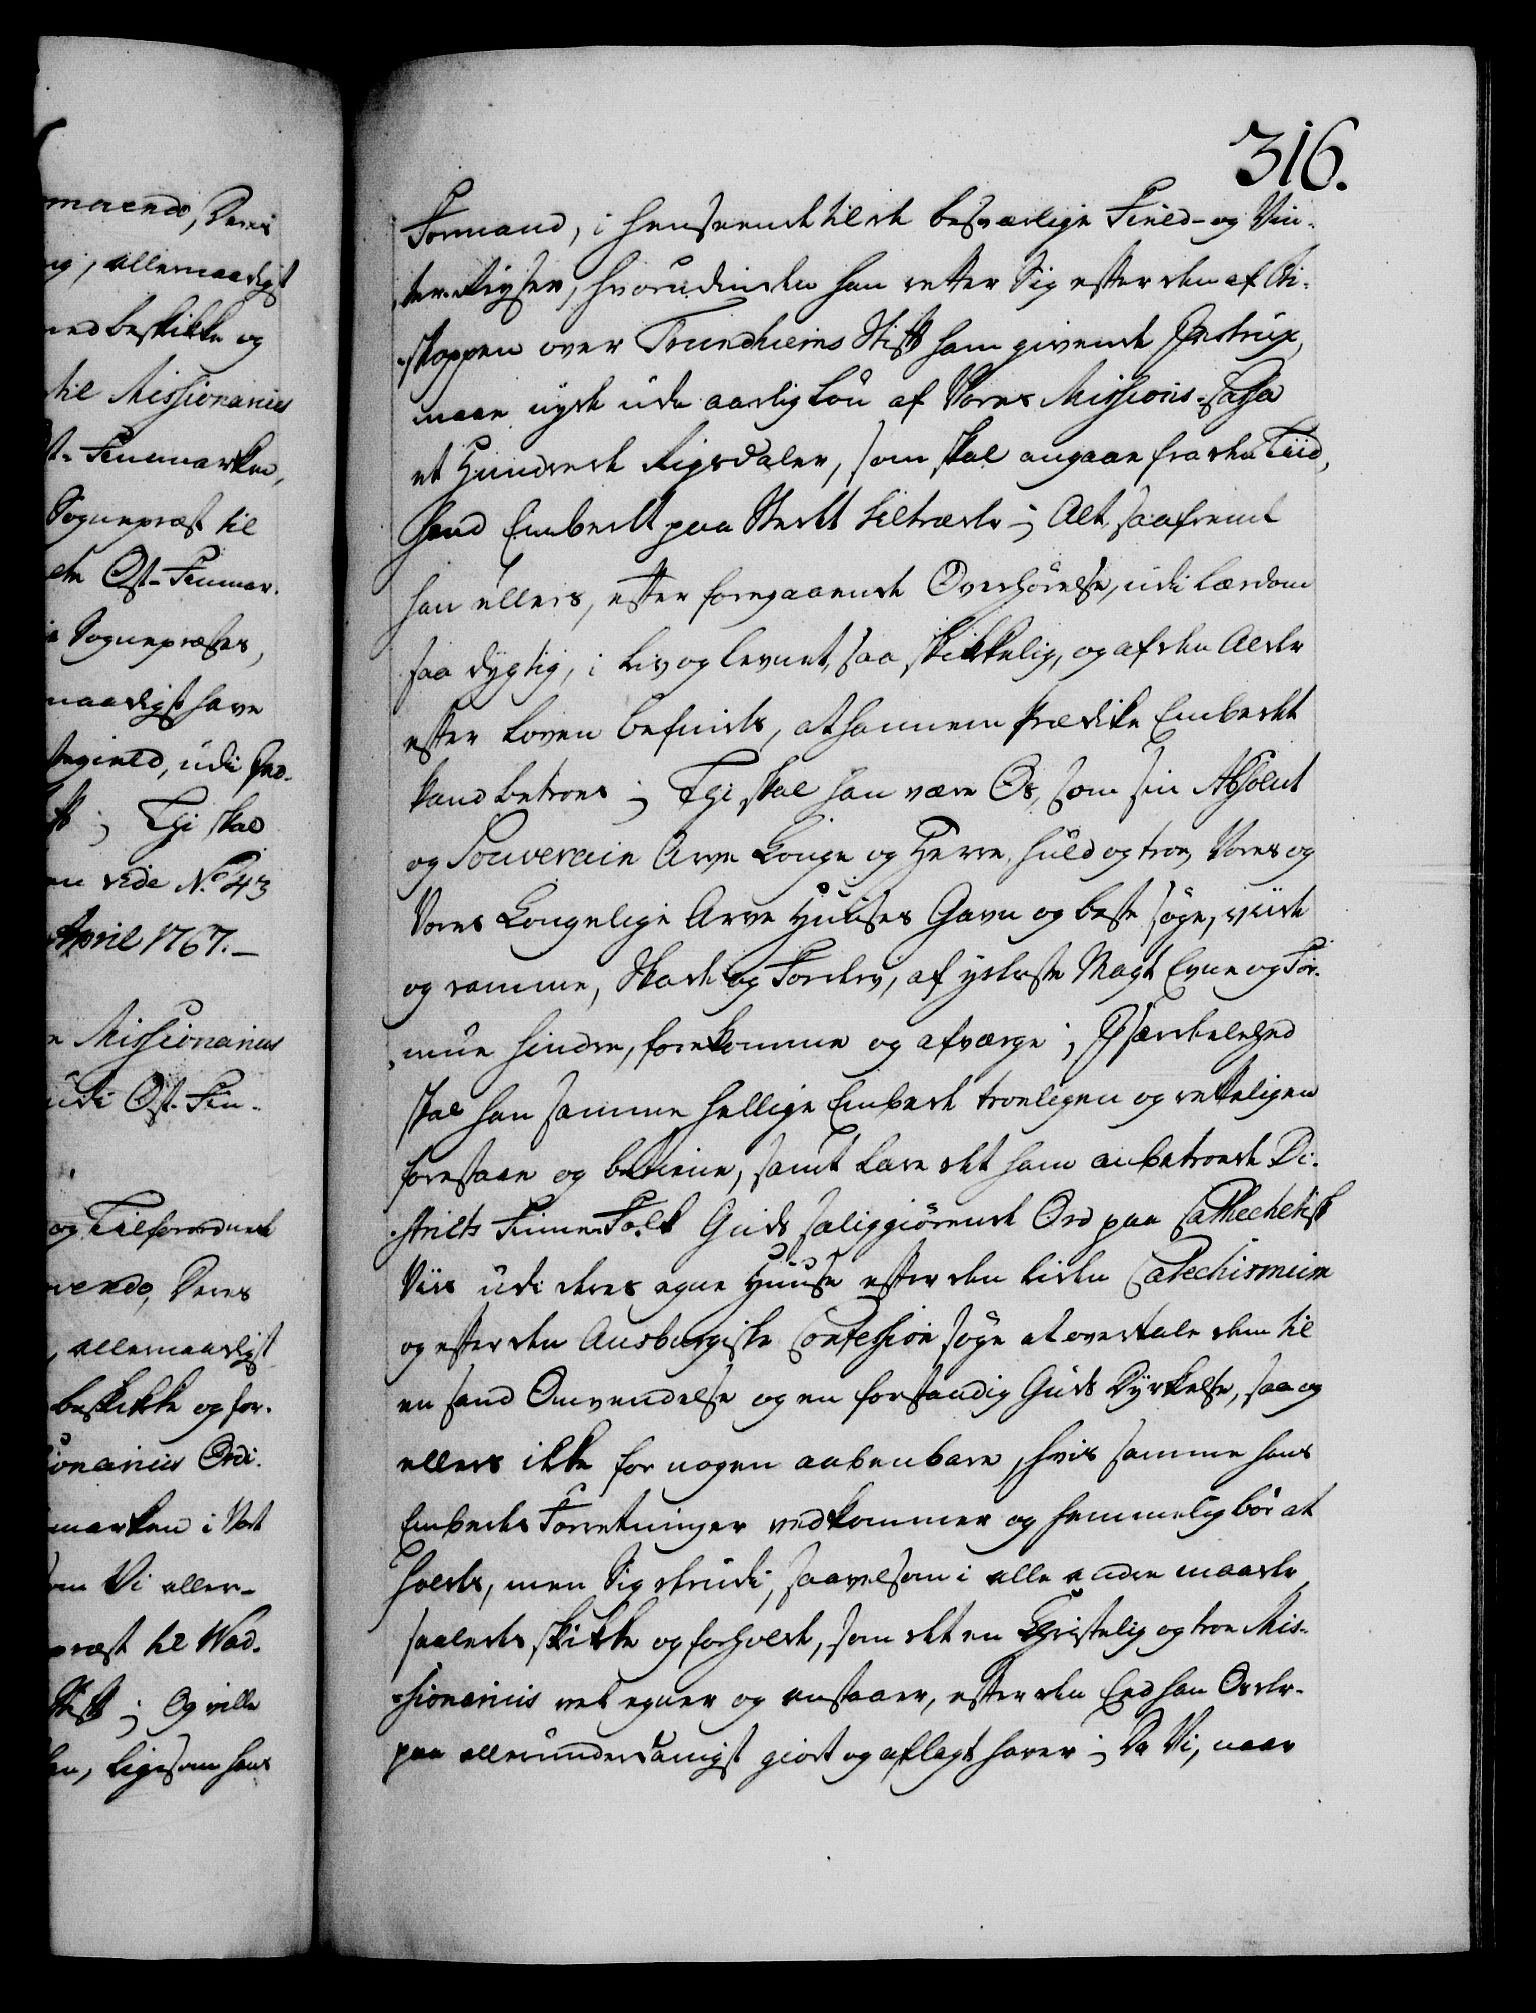 maendo, Deres
ng, allernaadigst
ned beskikke og
til Missionarius
st-Finmarken,
Sognepræst til
de Ost-Finmar-
Sognepræster,
naadigst have
stegield, udi
; Thi skal
vide No 43
April 1767.-
Missionarius
udi Ost-Fin-
og Tilforordnede
vendo, Deres
, allernaadigst
beskikke og for-
sionarius Ordi-
marken i Vort
som Vi aller-
præst til Wad-
Stift; Og ville
, ligesom hans
316.
Formand, i henseende til de besværlige Field- og Vin-
ter-Reyser, hvorudinden han retter Sig efter den af Bi-
skoppen over Trundhiems Stift ham givende Instrux,
maae nyde udi aarlig Løn af Vores Missions-Cassa
et Hundrede Rigsdaler, som skal angaae fra den Tiid,
hand Embedet paa Stedet tiltræder; Alt, saafremt
han ellers, efter foregaaende Overhørelse, udi Lærdom
saa dygtig, i Liv og Levnet, saa skikkelig, og af den Alder
efter Loven befindes, at hannem Prædike Embedet
kand betroes; Thi skal han være Os, som sin Absolut
og Souverain Arve Konge og Herre, huld og troe, Vores og
Vores Kongelige Arve Huuses Gavn og beste søge, viide
og ramme, Skade og Fordærv, af yderste Magt Evne og For-
mue hindre, forekomme og afværge; I Særdeleshed
skal han samme hellige Embede troeligen og retteligen
forestaae og betiene, samt lære det ham anbetroede Di-
stricts Finne-Folk Guds saliggiørende Ord paa Cathechetisk
Viis udi deres egne Huuse efter den liden Catechismum
og efter den Ausburgiske Confession søge at overtale dem til
en sand Omvendelse og en forstandig Guds Dyrkelse, saa og
ellers ikke for nogen aabenbare, hvis samme hans
Embedes Forretninger vedkommer og hemmelig bør at
holdes, men Sig derudi, saavelsom i alle andre maader
saaledes skikke og forholde, som det en Christelig og troe Mis-
sionarius vel egner og anstaaer, efter den Eed han Os der-
paa allerunderdanigst giort og aflagt haver; Da Vi, naar